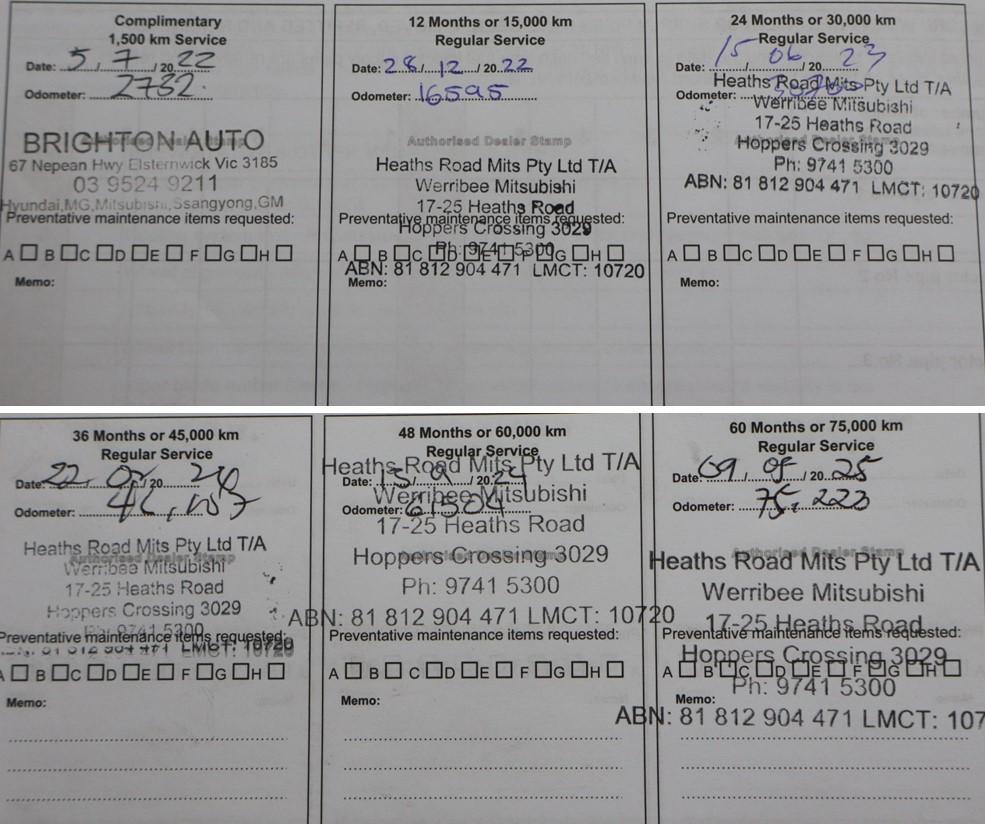 Complimentary
1,500 km Service
Date: 5, 7 / 20 22
Odometer: 2732
Authorised Dealer Stamp
BRIGHTON AUTO
67 Nepean Hwy Elsternwick Vic 3185
03 9524 9211
Hyundai,MG,Mitsubishi,Ssangyong,GM
Preventative maintenance items requested:
A B C D E F G H
Memo:
12 Months or 15,000 km
Regular Service
Date: 28 / 12 / 20 22
Odometer: 16595
Authorised Dealer Stamp
Heaths Road Mits Pty Ltd T/A
Werribee Mitsubishi
17-25 Heaths Road
Preventative maintenance items requested:
Hoppers Crossing 3029
A B C D E F G H
Ph: 9741 5300
ABN: 81 812 904 471 LMCT: 10720
Memo:
24 Months or 30,000 km
Regular Service
Date: 15 / 06 / 20 23
Heaths Road Mits Pty Ltd T/A
Odometer:
Werribee Mitsubishi
17-25 Heaths Road
Authorised Dealer Stamp
Hoppers Crossing 3029
Ph: 9741 5300
ABN: 81 812 904 471 LMCT: 10720
Preventative maintenance items requested:
A B C D E F G H
Memo:
36 Months or 45,000 km
Regular Service
Date: 22, / 20 24
Odometer:
Heaths Road Mits Pty Ltd T/A
Authorised Dealer Stamp
Werribee Mitsubishi
17-25 Heaths Road
Hoppers Crossing 3029
Ph: 9741 5300
Preventative maintenance items requested:
ABN: 81 812 904 471 LMCT: 10720
A B C D E F G H
Memo:
48 Months or 60,000 km
Regular Service
Heaths Road Mits Pty Ltd T/A
Date: 13 / 9 / 20 24
Werribee Mitsubishi
Odometer: 61504
17-25 Heaths Road
Authorised Dealer Stamp
Hoppers Crossing 3029
Ph: 9741 5300
ABN: 81 812 904 471 LMCT: 10720
Preventative maintenance items requested:
A B C D E F G H
Memo:
60 Months or 75,000 km
Regular Service
Date: 09, 05 / 20 25
Odometer: 75,223
Authorised Dealer Stamp
Heaths Road Mits Pty Ltd T/A
Werribee Mitsubishi
17-25 Heaths Road
Preventative maintenance items requested:
Hoppers Crossing 3029
A B C D E F G H
Ph: 9741 5300
Memo:
ABN: 81 812 904 471 LMCT: 107